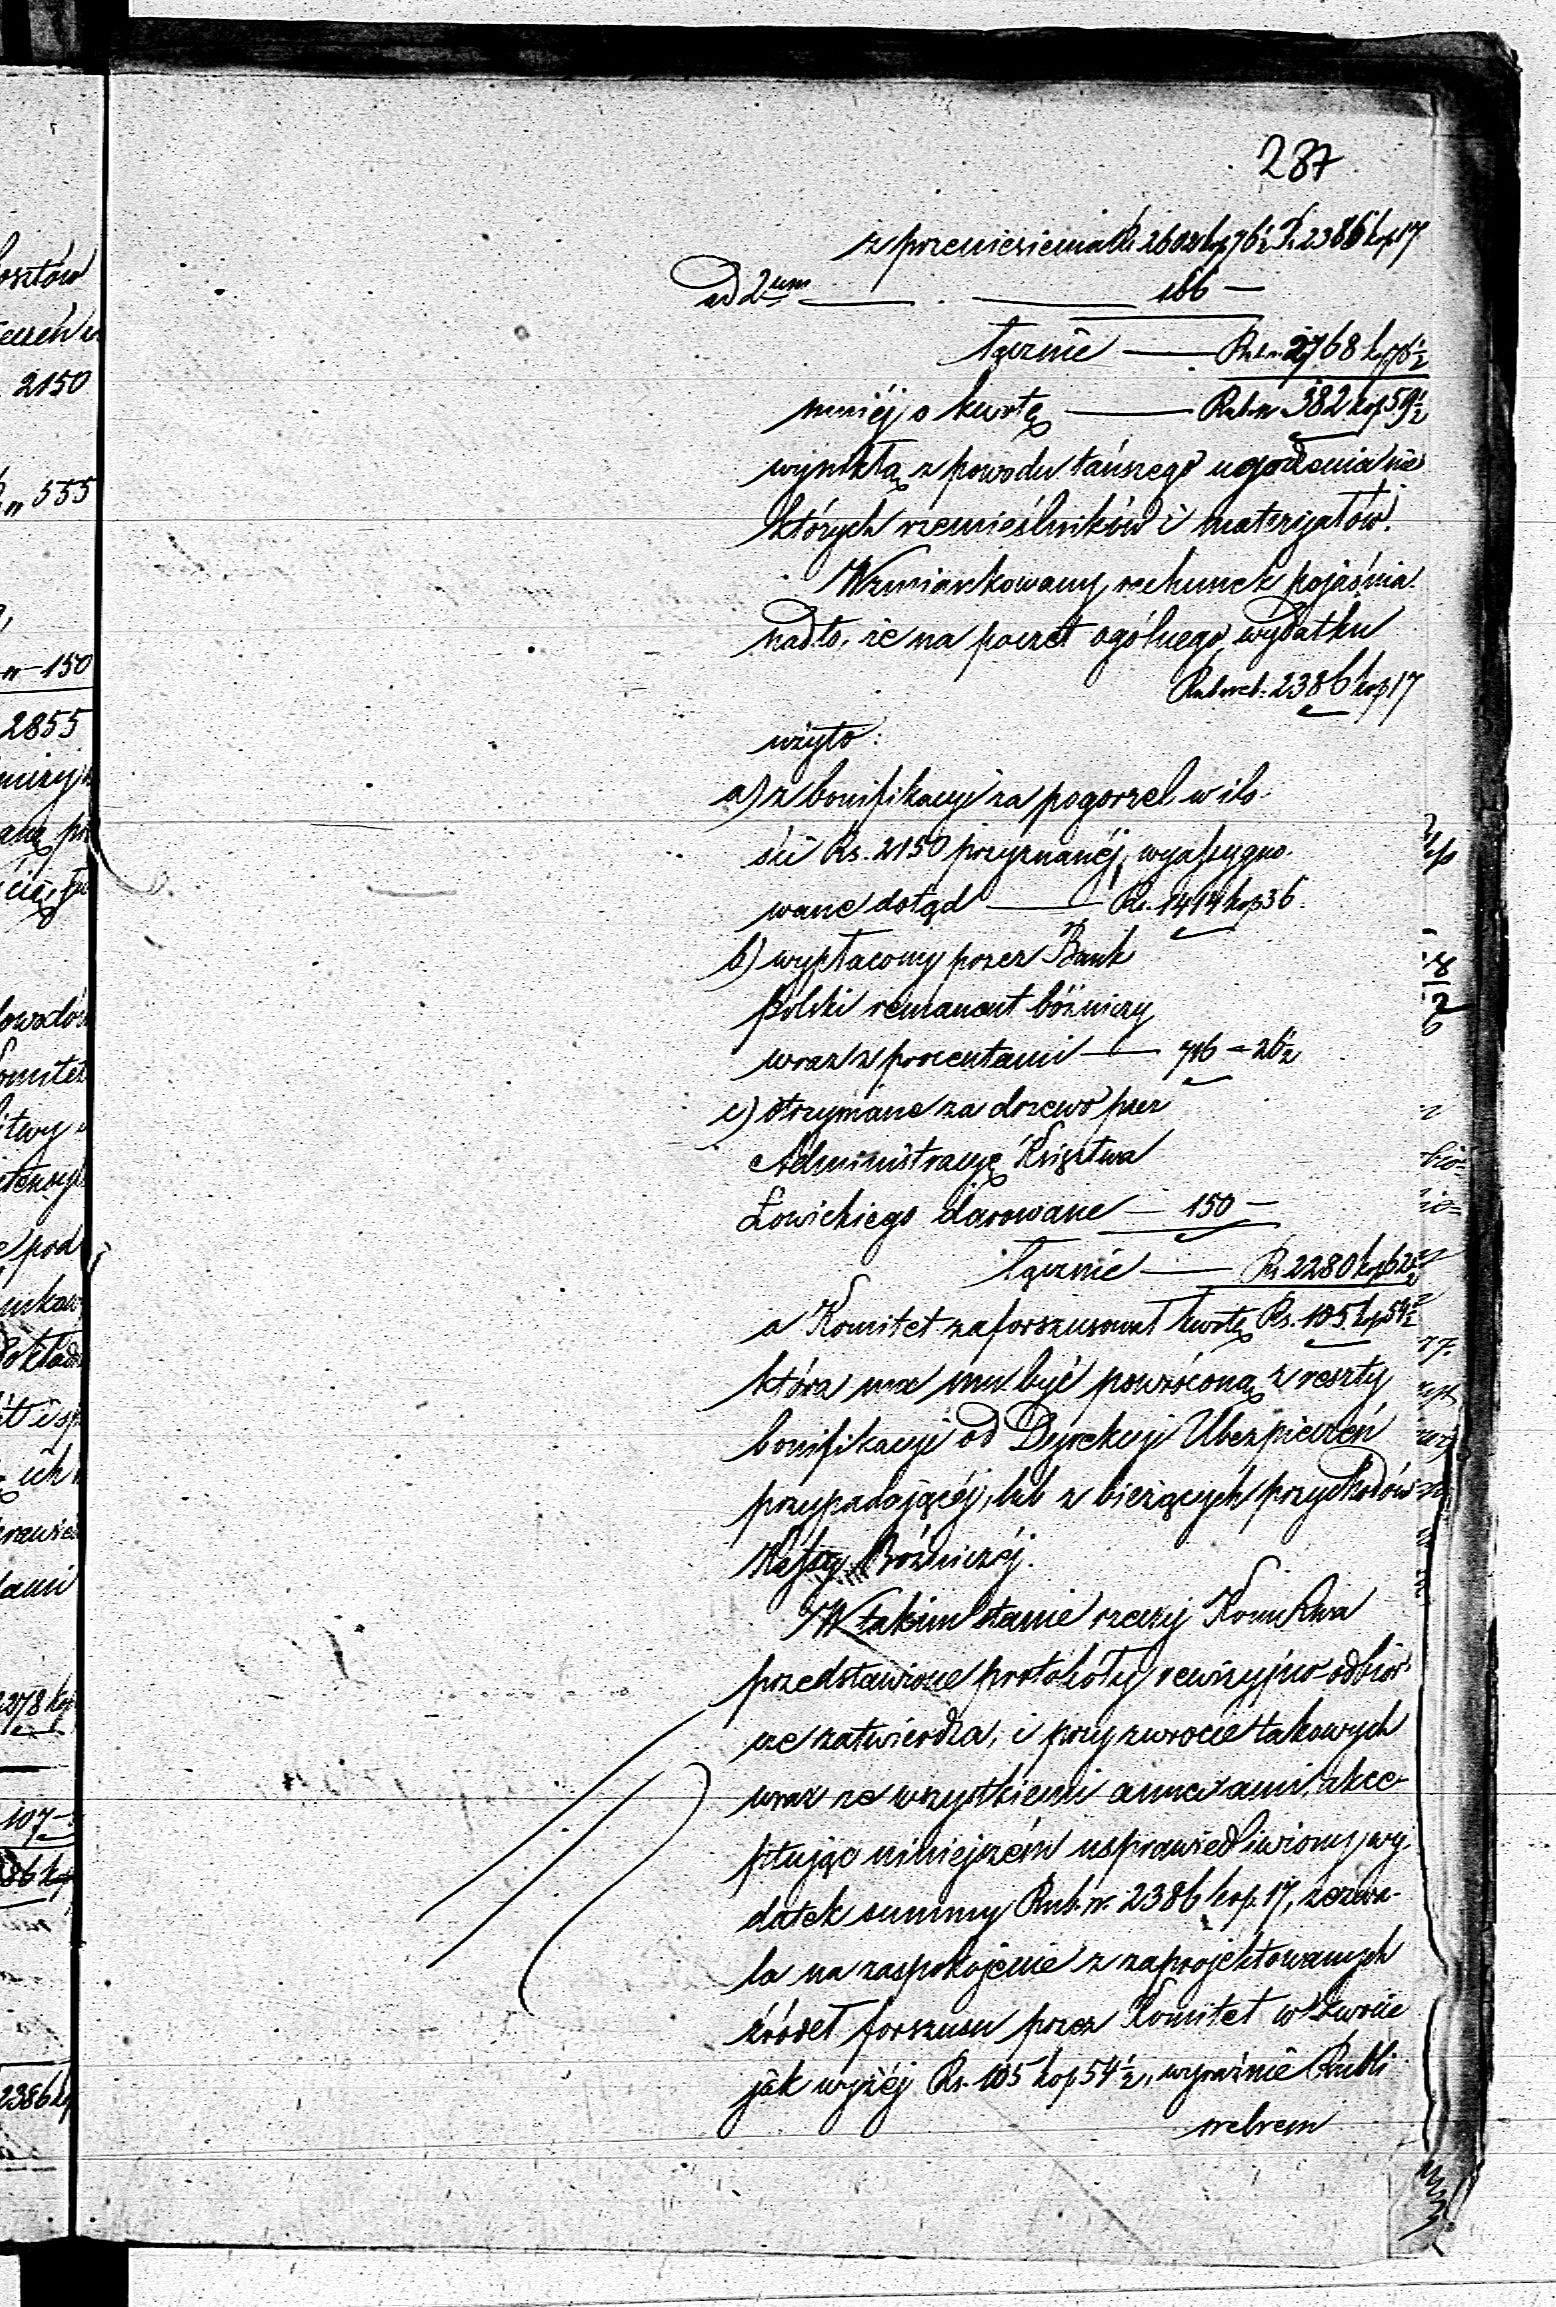 287
z przeniesienia Rs. 2602 kop 76½ Rs. 2386 kop 17
ad 2um — 166 —
łącznie — Rub. sr. 2768 kop 76½
mniéj o kwotę — Rub. sr. 382 kop 59½
wynikłą z powodu tańszego ugodzenia nie
których rzemieślników i materyałów.
Wzmiankowany rachunek pojaśnia
nadto, że na poczet ogólnego wydatku
Rub sreb. 2386 kop 17
użyto:
a) z bonifikacyi za pogorzel w ilo
ści Rs. 2150 przyznanéj, wyassygno
wane dotąd — Rs. 1414 kop 36.
b) wypłacony przez Bank
Polski remanent bóżniczy
wraz z procentami — 716 – 26½
c) otrzymane za drzewo przez
Administracyę Księstwa
Łowickiego darowane — 150 —
łącznie — Rs. 2280 kop 62½
a Komitet zaforszusował kwotę Rs. 105 kop 54½
która ma mu być powróconą z reszty
bonifikacyi od Dyrekcyi Ubezpieczeń
przypadającéj, lub z bieżących przychodów
Kassy Bóżniczéj.
W takim stanie rzeczy Kom Rwa
przedstawione protokóły rewizyjno odbior
cze zatwierdza, i przy zwrocie takowych
wraz ze wszystkiemi annexami, akce-
ptując niniejszém usprawiedliwiony wy
datek summy Rub. sr. 2386 kop. 17, zezwa-
la na zaspokojenie z zaprojektowanych
źródeł forszusu przez Komitet w kwocie
jak wyżéj Rs. 105 kop 54½, wyraźnie Rubli
srebrem